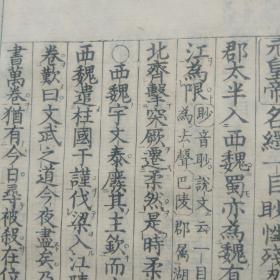 元皇帝名繹一目眇性殘
郡太半入西魏蜀亦為魏
江為限
說文云一
為去聲巴陵郡屬湖
北齊擊突厥遷柔然是時柔
〇西魏宇文泰廢其主欽而
西魏遣柱國于謹伐梁入江
卷歎曰文武之道今夜盡矣乃
書萬卷猶有今日尋被殺在位